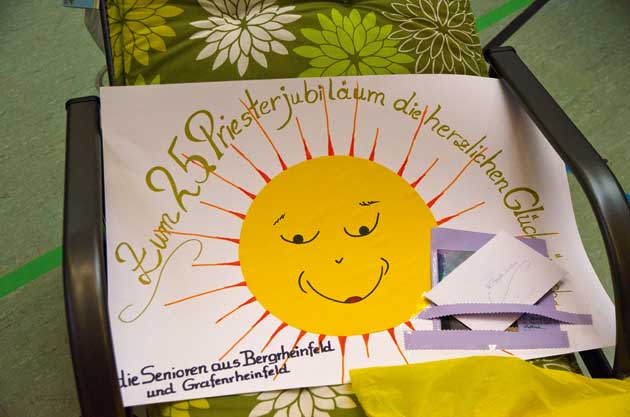 Zum 25 Priesterjubiläum die herzlichen Glück
die Senioren aus Bergrheinfeld
und Grafenrheinfeld